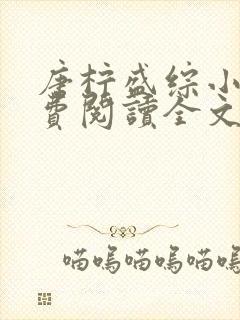 唐柠盛综小
费阅讀全文
喵嗚喵嗚喵嗚